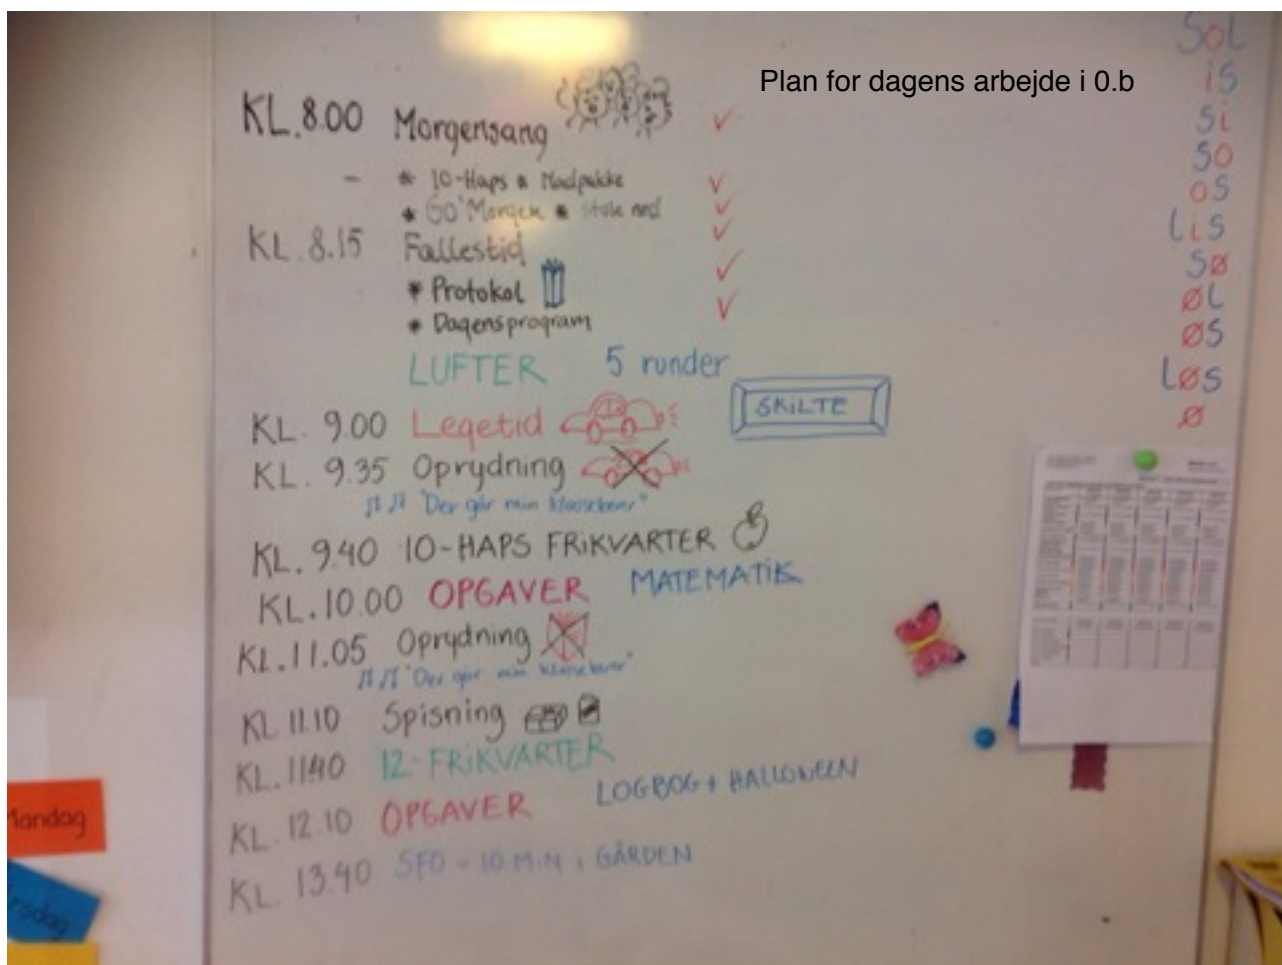 Plan for dagens arbejde i 0.b
KL. 8.00 Morgensang
- * 10-Haps * Madpakke
* Go' Morgen * stole ned
KL. 8.15 Fællestid
* Protokol
* Dagensprogram
LUFTER 5 runder
SKiLTE
KL. 9.00 Legetid
KL. 9.35 Oprydning
"Der går min klassebamse"
KL. 9.40 10-HAPS FRiKVARTER
KL. 10.00 OPGAVER MATEMATiK
KL. 11.05 Oprydning
"Der går min
KL 11.10 Spisning
KL. 11.40 12-FRiKVARTER
KL. 12.10 OPGAVER LOGBOG + HALLOWEEN
KL. 13.40 SFO = 10 MiN i GÅRDEN
SOL
iS
Si
SO
OS
LiS
SØ
ØL
ØS
LØS
Ø
Mandag
rsdag